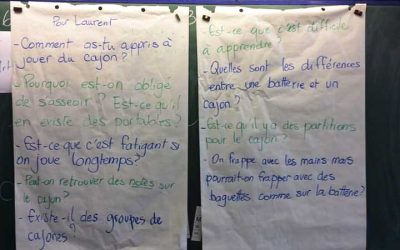 Pour Laurent
- Comment as-tu appris à
jouer du cajon?
- Pourquoi est-on obligé
de s'asseoir? Est-ce qu'il
en existe des portables?
- Est-ce que c'est fatigant si
on joue longtemps?
- Peut-on retrouver des notes sur
le cajon?
- Existe-il des groupes de
cajones?
- Est-ce que c'est difficile
à apprendre
- Quelles sont les différences
entre une batterie et un
cajon?
- Est-ce qu'il y a des partitions
pour le cajon?
- On frappe avec les mains mais
pourrait-on frapper avec des
baguettes comme sur la batterie?